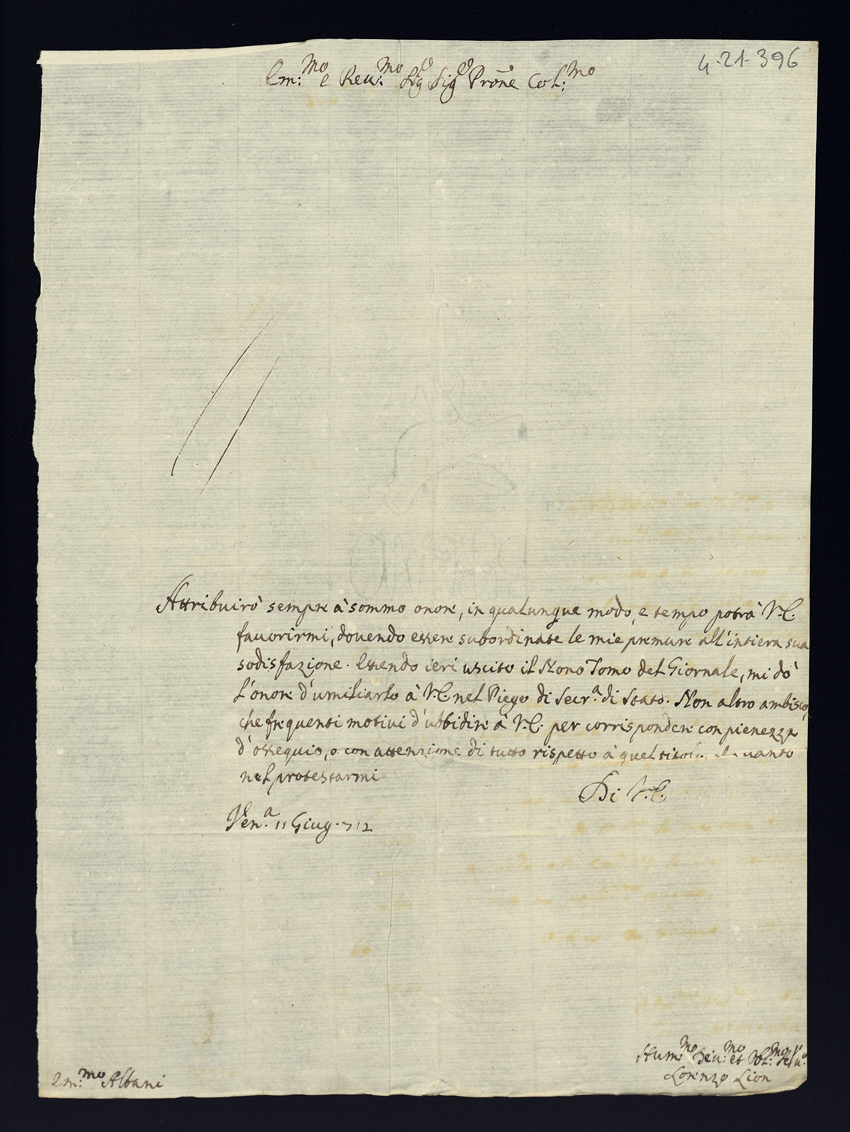 4-21-396
Em:mo e Reu:mo Sig.e Sig.e Pro͞ne Col:mo
Attribuirò sempre à sommo onore, in qualunque modo, e tempo potrà V.E.
fauorirmi, douendo essere subordinate le mie premure all'intiera sua
sodisfazione. Essendo ieri uscito il Nono Tomo del Giornale, mi dò
l'onore d'umiliarlo à V.E. nel Piego di Secr.a di Stato. Non altro ambisco,
che frequenti motiui d'ubbidire à V.E. per corrispondere con pienezza
d'ossequio, e con attenzione di tutto rispetto à quel
nel protestarmi
Di V.E.
Ven.a 11 Giug. 712
Hum:mo Deu:mo et Obl:mo
Lorenzo Lion
Em:mo Albani